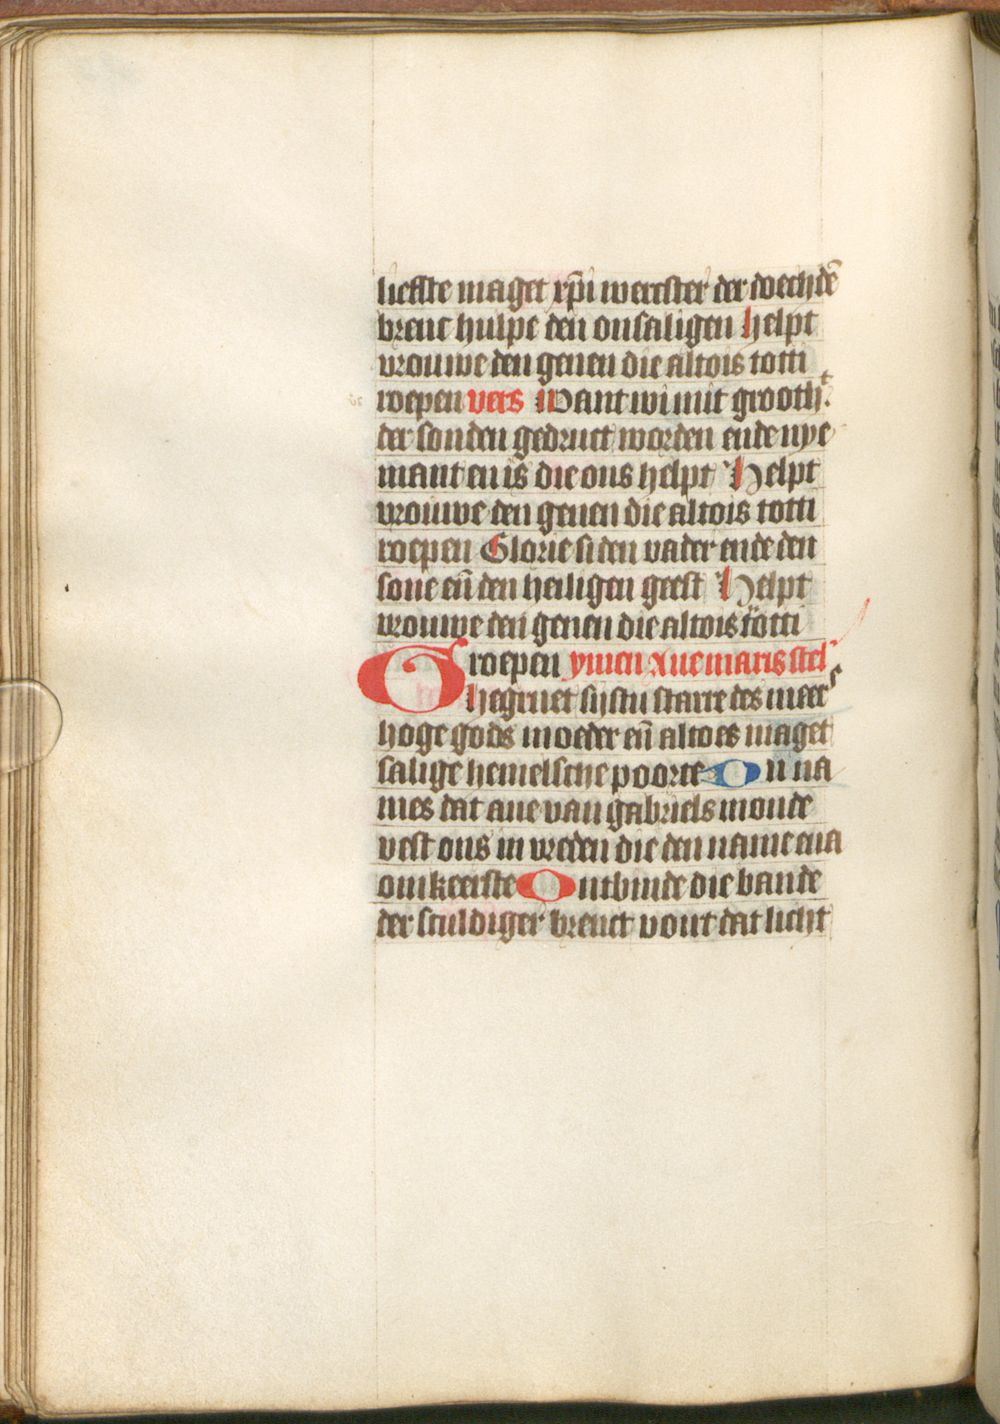 liefste maget xp̄i weerster der doechdē
brenc hulpe den onsaligen Helpt
vrouwe den genen die altois totti
roepen vers Want wi mit grooth't
der sonden gedruct worden ende nye
mant en is die ons helpt Helpt
vrouwe den genen die altois totti
roepen Glorie si den vader ende den
sone eñ den heiligen geest Helpt
vrouwe den genen die altois tottí
roepen ymen Aue maris stel
Ghegruet sijstu starre des meers
hoge gods moeder eñ altoes maget
salige hemelsche poorte Du na
mes dat aue van gabriels monde
vest ons in vreden die den name eua
omkeerste Ontbinde die bande
der sculdiger brenct vourt dat licht